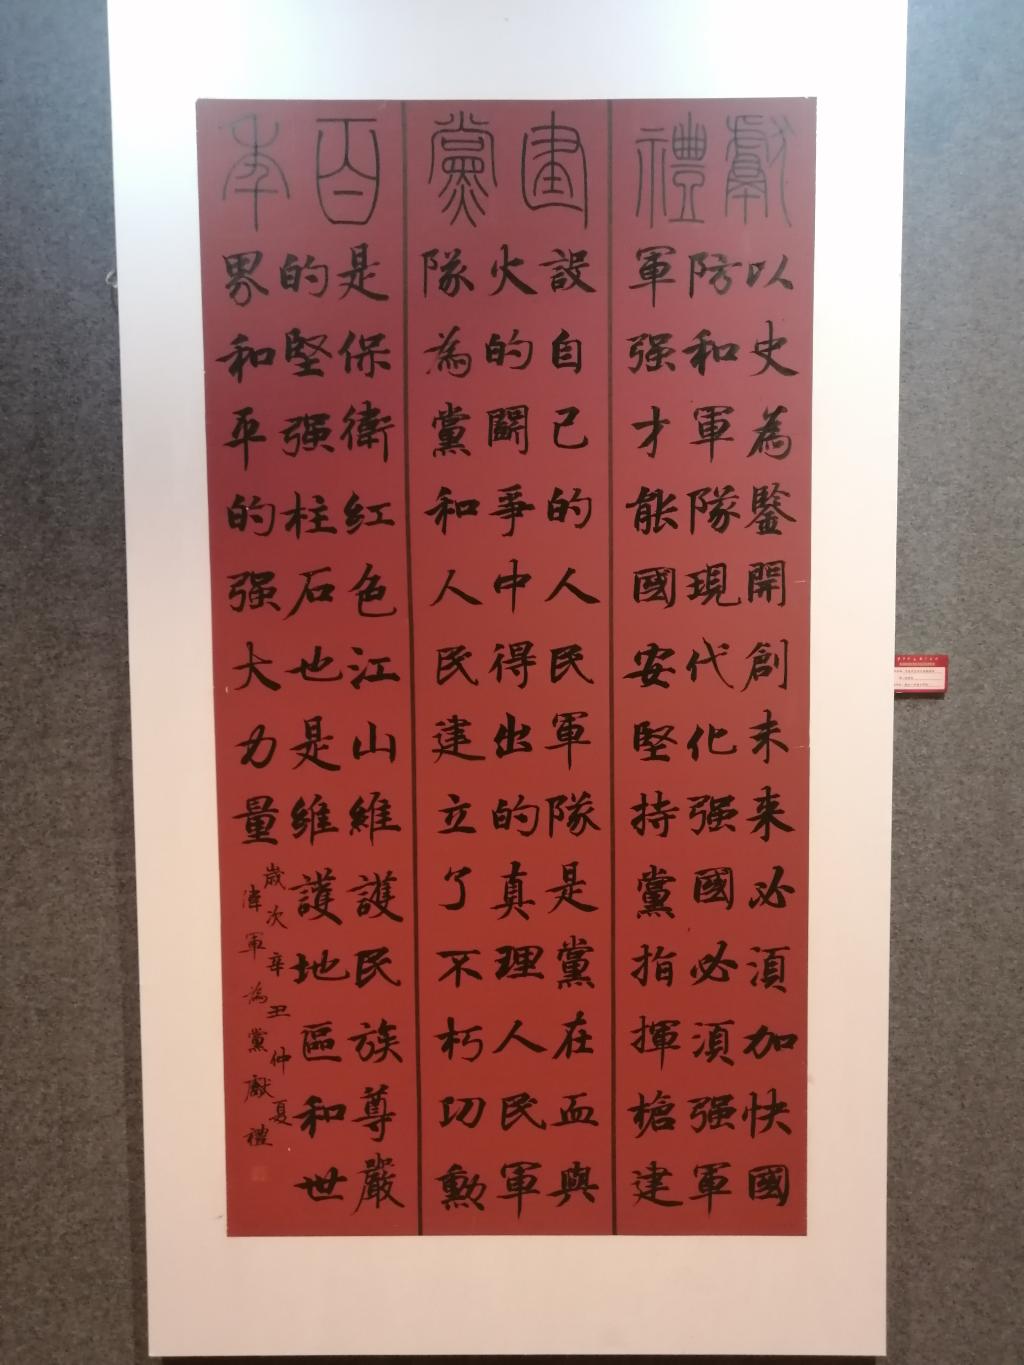 獻禮建黨百年
以史為鑒開創未来必須加快國
防和軍隊現代化强國必須强軍
軍强才能國安堅持黨指揮槍建
設自己的人民軍隊是黨在血與
火的鬭爭中得出的真理人民軍
隊為黨和人民建立了不朽功勳
是保衛红色江山維護民族尊嚴
的堅强柱石也是維護地區和世
界和平的强大力量
歲次辛丑仲夏
軍為黨獻禮